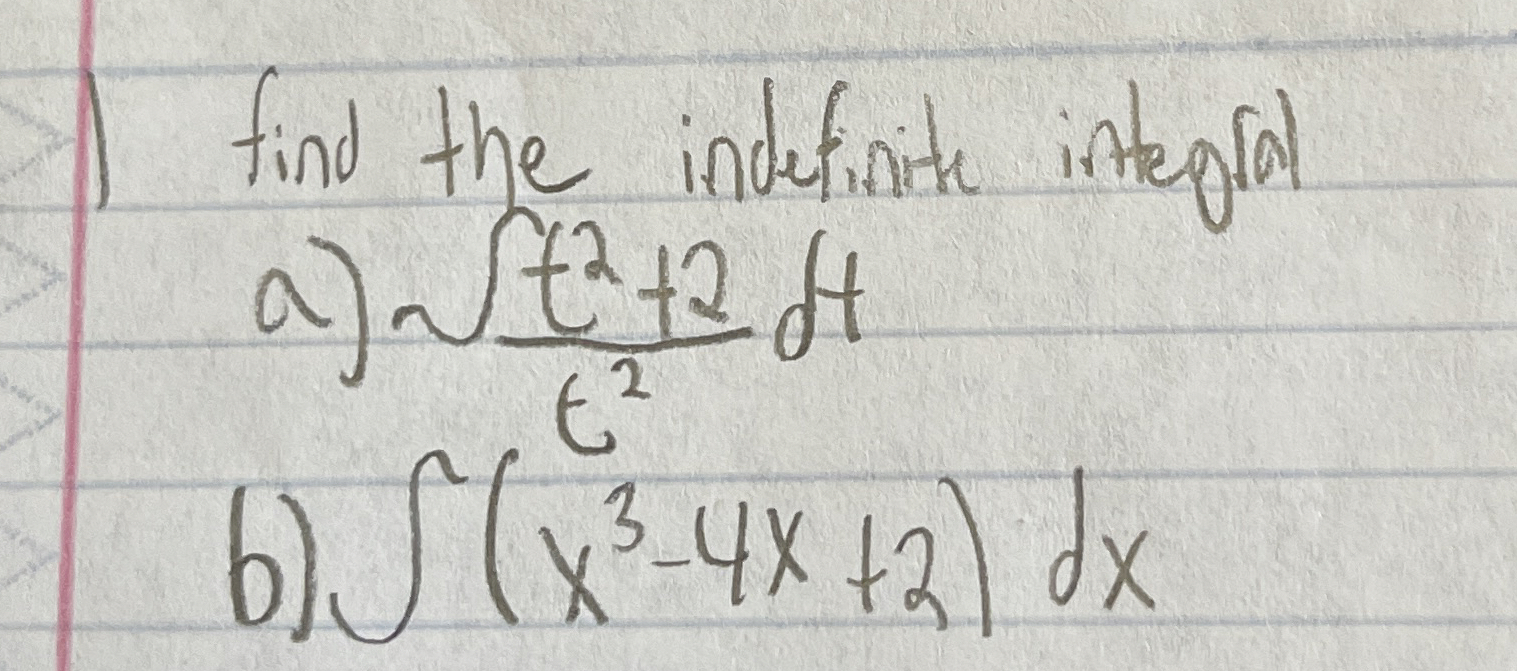 1 find the indefinite integral
a) ∫ (t² + 2)/t² dt
b) ∫ (x³ - 4x + 2) dx